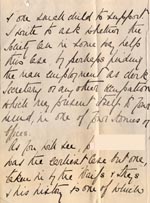 & one small child to support
I write to ask whether the
Society can in some way help
this case, by perhaps finding
the man employment as clerk
Secretary or any other occupation
which may present itself to your
mind, in one of your Homes or
offices.
As you will see,
was the earliest case but one,
taken in by the Waifs & Strays
& his history is one of which